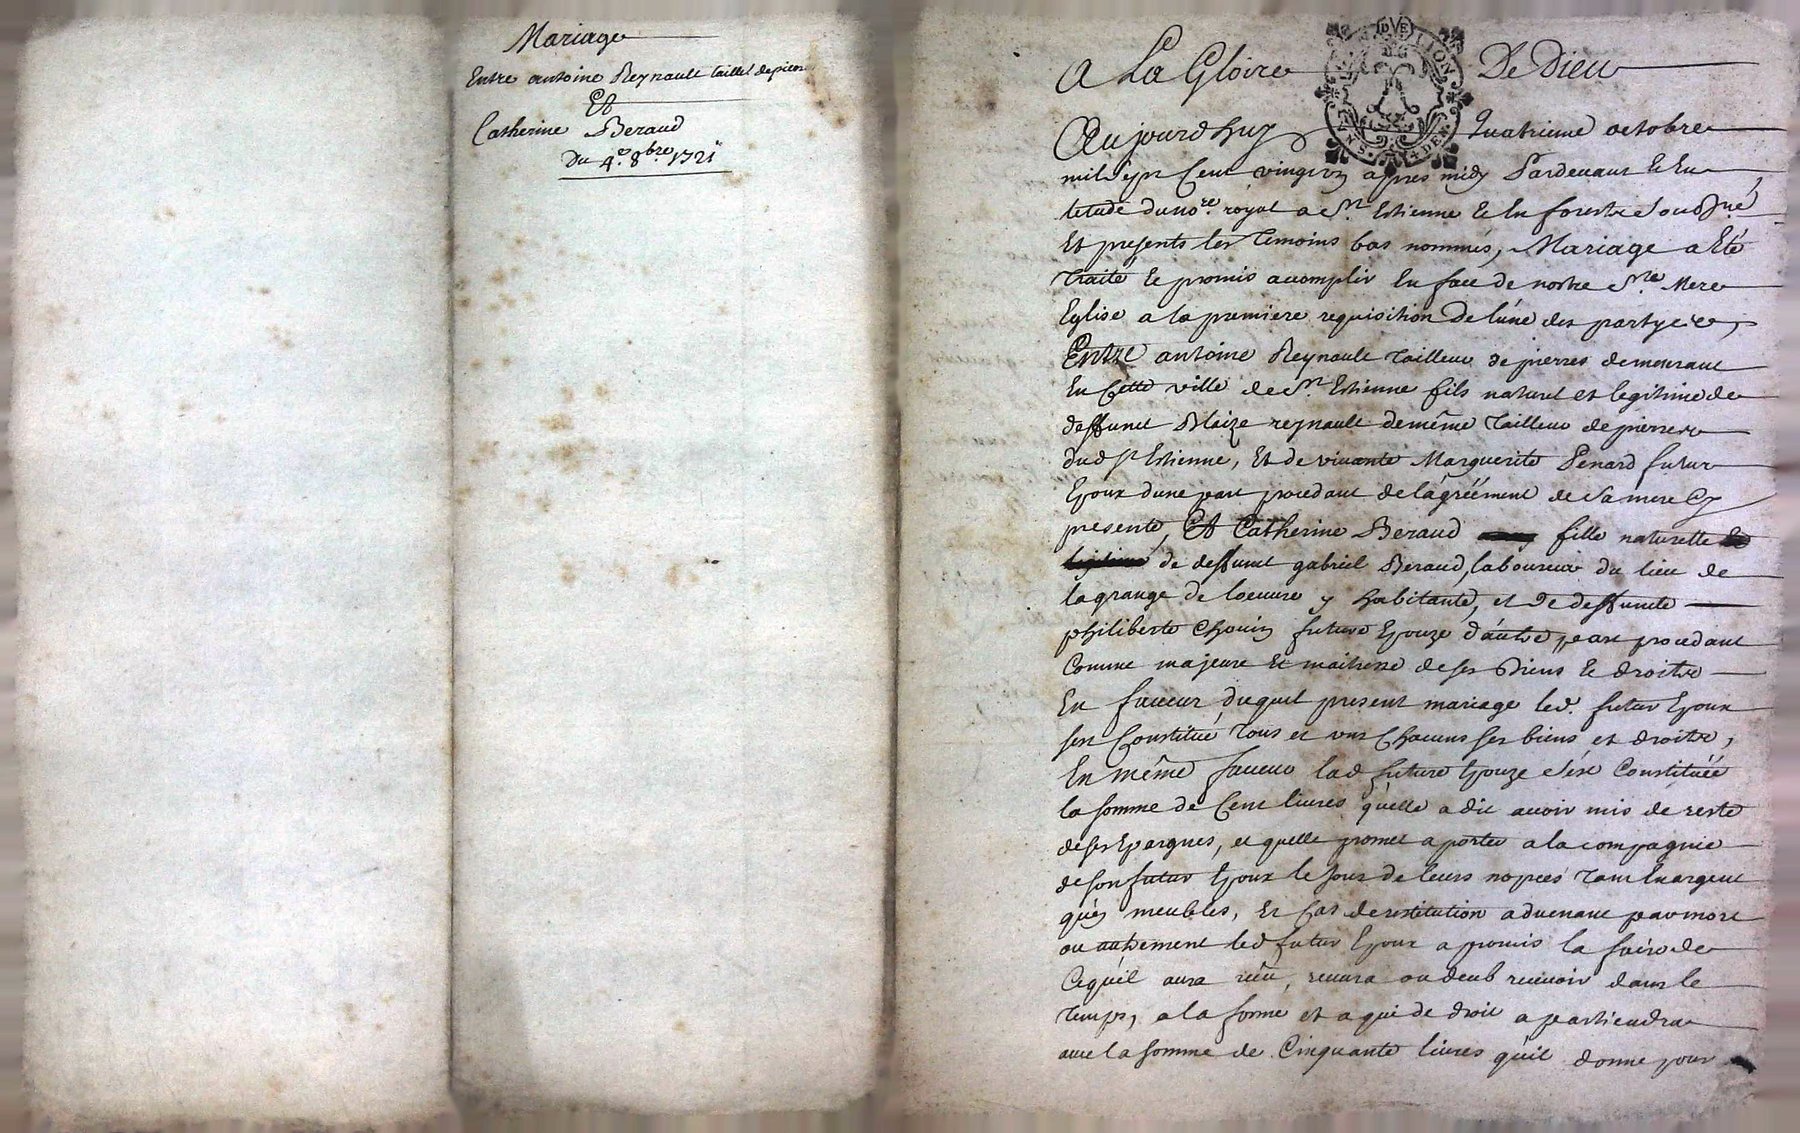 Mariage
Entre antoine Reynault taille.r de pierre
Et
Catherine Beraud
Du 4.e 8bre 1721
A La Gloire De Dieu
GEN DVE LION
4 DEN
Aujourd huy quatrieme octobre
mil sept Cent vingt un apres midy Pardevant Et En
letude du no.re royal a St Estienne Et En forest sousigné
Et presents les Temoins bas nommés, Mariage a Eté
Traité Et promis accomplir En face de nostre Ste Mere
Eglise a la premiere requisition de l'une des partyes,
Entre antoine Reynault Tailleur de pierres demeurant
En Cette ville de St Estienne fils naturel et legitime de
deffunct Blaize reynault de même Tailleur de pierres
dud St Estienne, Et de vivante Marguerite Penard futur
Epoux d'une part procedant de l'agréément de sa mere Cy
presente, Et Catherine Beraud fille naturelle
de deffunct gabriel Beraud, laboureur du lieu de
la grange de loeuvre y habitante, et de deffuncte
philiberte Chouin future Epouze d'autre part procedant
Comme majeure Et maitresse de ses Biens Et droits
En faveur duquel present mariage led. futur Epoux
sest Constitué Tous et uns Chacuns ses biens et droits,
En même faveur lad future Epouze s'est Constituée
la somme de Cent livres qu'elle a dit avoir mis de reste
de ses Epargnes, et quelle promet aporter a la compagnie
de son futur Epoux le Jour de leurs nopces Tant En argent
qu'en meubles, Et Cas de restitution advenant par mort
ou autrement led futur Epoux a promis la faire de
Ce qu'il aura reçu, recevra ou deub recevoir dans le
Temps, a la forme et a qui de droit apartiendra
avec la somme de Cinquante livres qu'il donne pour